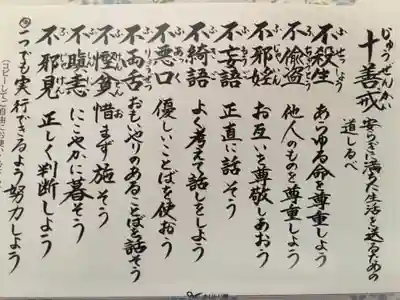 十善戒 じゅうぜんかい
安らぎに満ちた生活を送るための
道しるべ
不殺生 ふせっしょう あらゆる命を尊重しよう
不偸盗 ふちゅうとう 他人のものを尊重しよう
不邪婬 ふじゃいん お互いを尊敬しあおう
不妄語 ふもうご 正直に話そう
不綺語 ふきご よく考えて話しをしよう
不悪口 ふあっく 優しいことばを使おう
不両舌 ふりょうぜつ おもいやりのあることばを話そう
不慳貪 ふけんどん 惜まず施そう
不瞋恚 ふしんに にこやかに暮そう
不邪見 ふじゃけん 正しく判断しよう
一つでも実行できるよう努力しよう
(コピーしてご自由にお使い